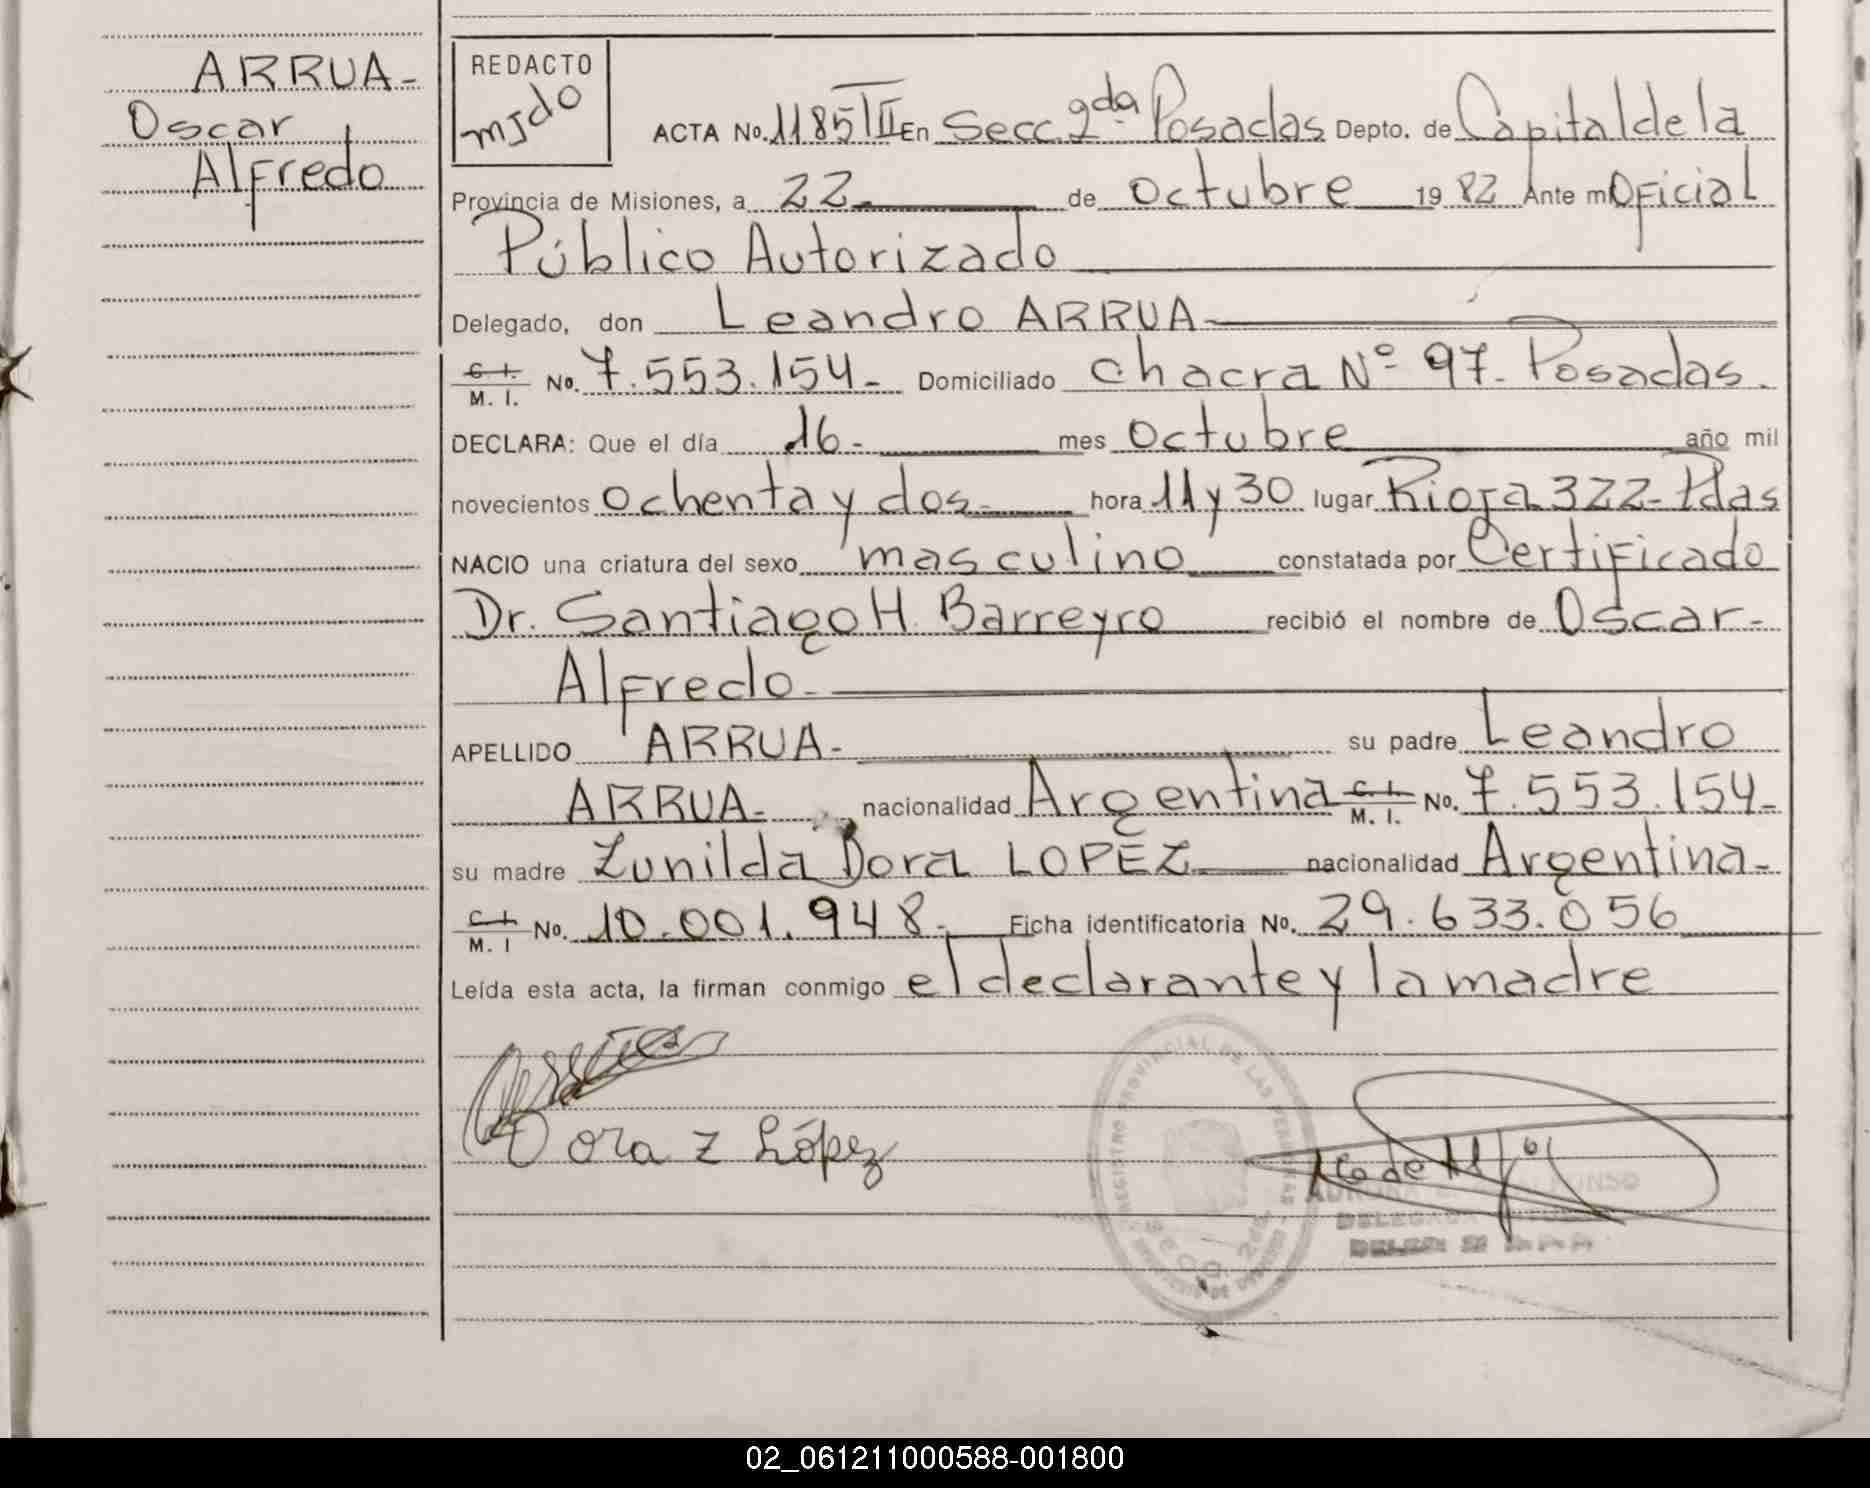 ARRUA-
Oscar
Alfredo
REDACTO
mjdo
ACTA No. 1185/II En Secc. 2da. Posadas Depto. de Capital de la
Provincia de Misiones, a 22- de octubre 1982 Ante mi Oficial
Público Autorizado
Delegado, don Leandro ARRUA-
C. I. M. I. No. 7.553.154- Domiciliado chacra Nº 97- Posadas.
DECLARA: Que el día 16- mes octubre año mil
novecientos ochenta y dos- hora 11 y 30 lugar Rioja 322- Pdas
NACIO una criatura del sexo masculino constatada por Certificado
Dr. Santiago H. Barreyro recibió el nombre de Oscar-
Alfredo-
APELLIDO ARRUA- su padre Leandro
ARRUA- nacionalidad Argentina C. I. M. I. No. 7.553.154-
su madre Zunilda Dora LOPEZ nacionalidad Argentina-
C. I. M. I No. 10.001.948- Ficha identificatoria No. 29.633.056
Leída esta acta, la firman conmigo el declarante y la madre
Dora Z López
REGISTRO PROVINCIAL DE LAS PERSONAS
SECC. 2da.
DELEGADA TITULAR
02_061211000588-001800